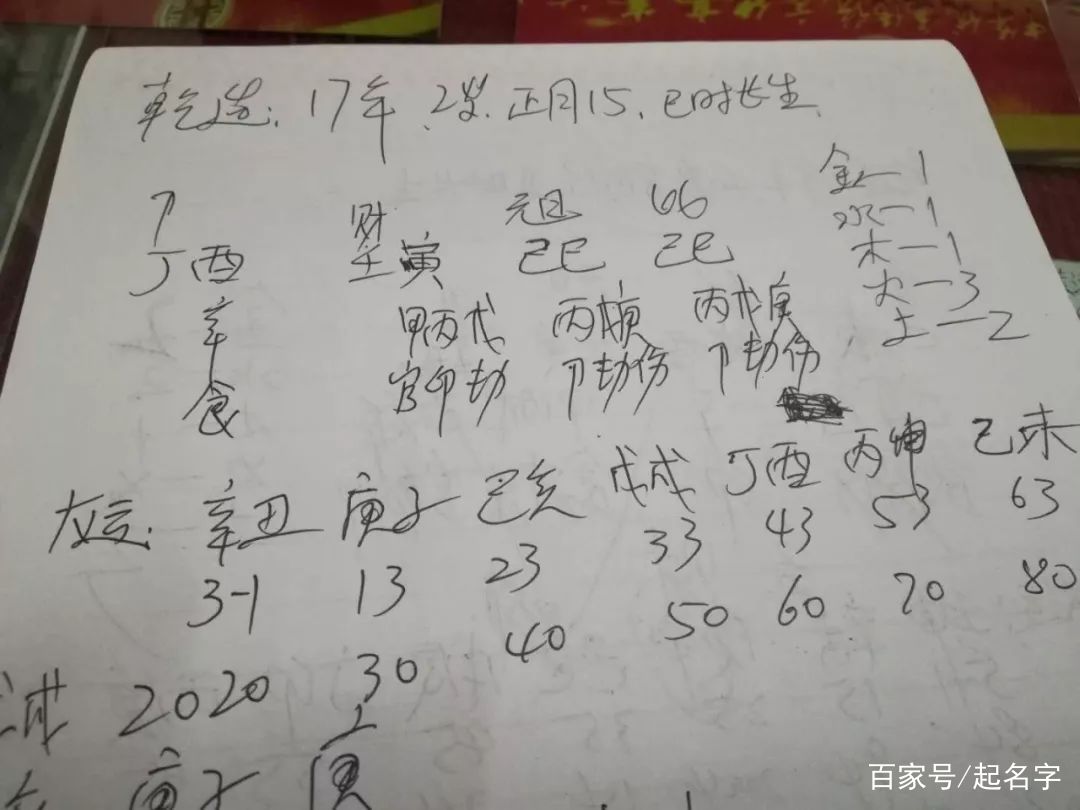 乾造：17年、2岁、正月15、巳时长生
金一1
P 财 元旦 比
水一1
丁酉 壬寅 己巳 己巳
木一1
辛 甲丙戊 丙戊庚 丙戊庚
火一3
食 官印劫 P劫伤 P劫伤
土一2
大运：辛丑 庚子 己亥 戊戌 丁酉 丙申 己未
3-1 13 23 33 43 53 63
2020 30 40 50 60 70 80
庚子
百家号/起名字